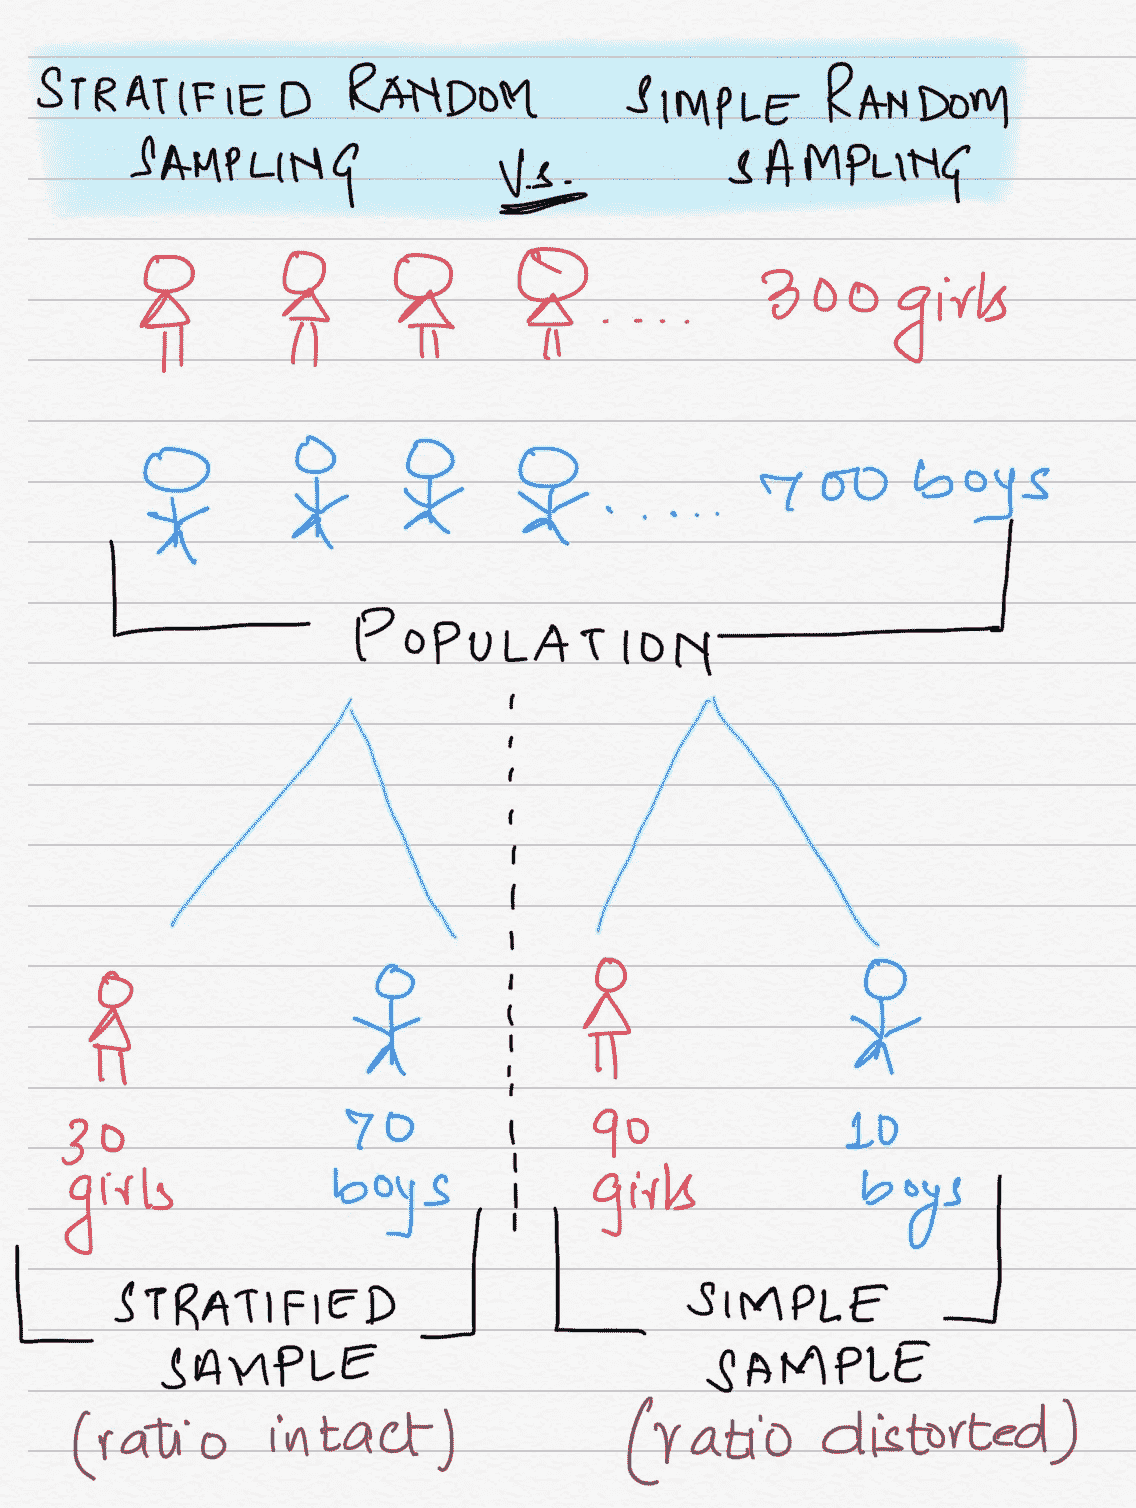 STRATIFIED RANDOM SAMPLING
V.s.
SIMPLE RANDOM SAMPLING
..... 300 girls
...... 700 boys
POPULATION
30 girls
70 boys
90 girls
10 boys
STRATIFIED SAMPLE
(ratio intact)
SIMPLE SAMPLE
(ratio distorted)